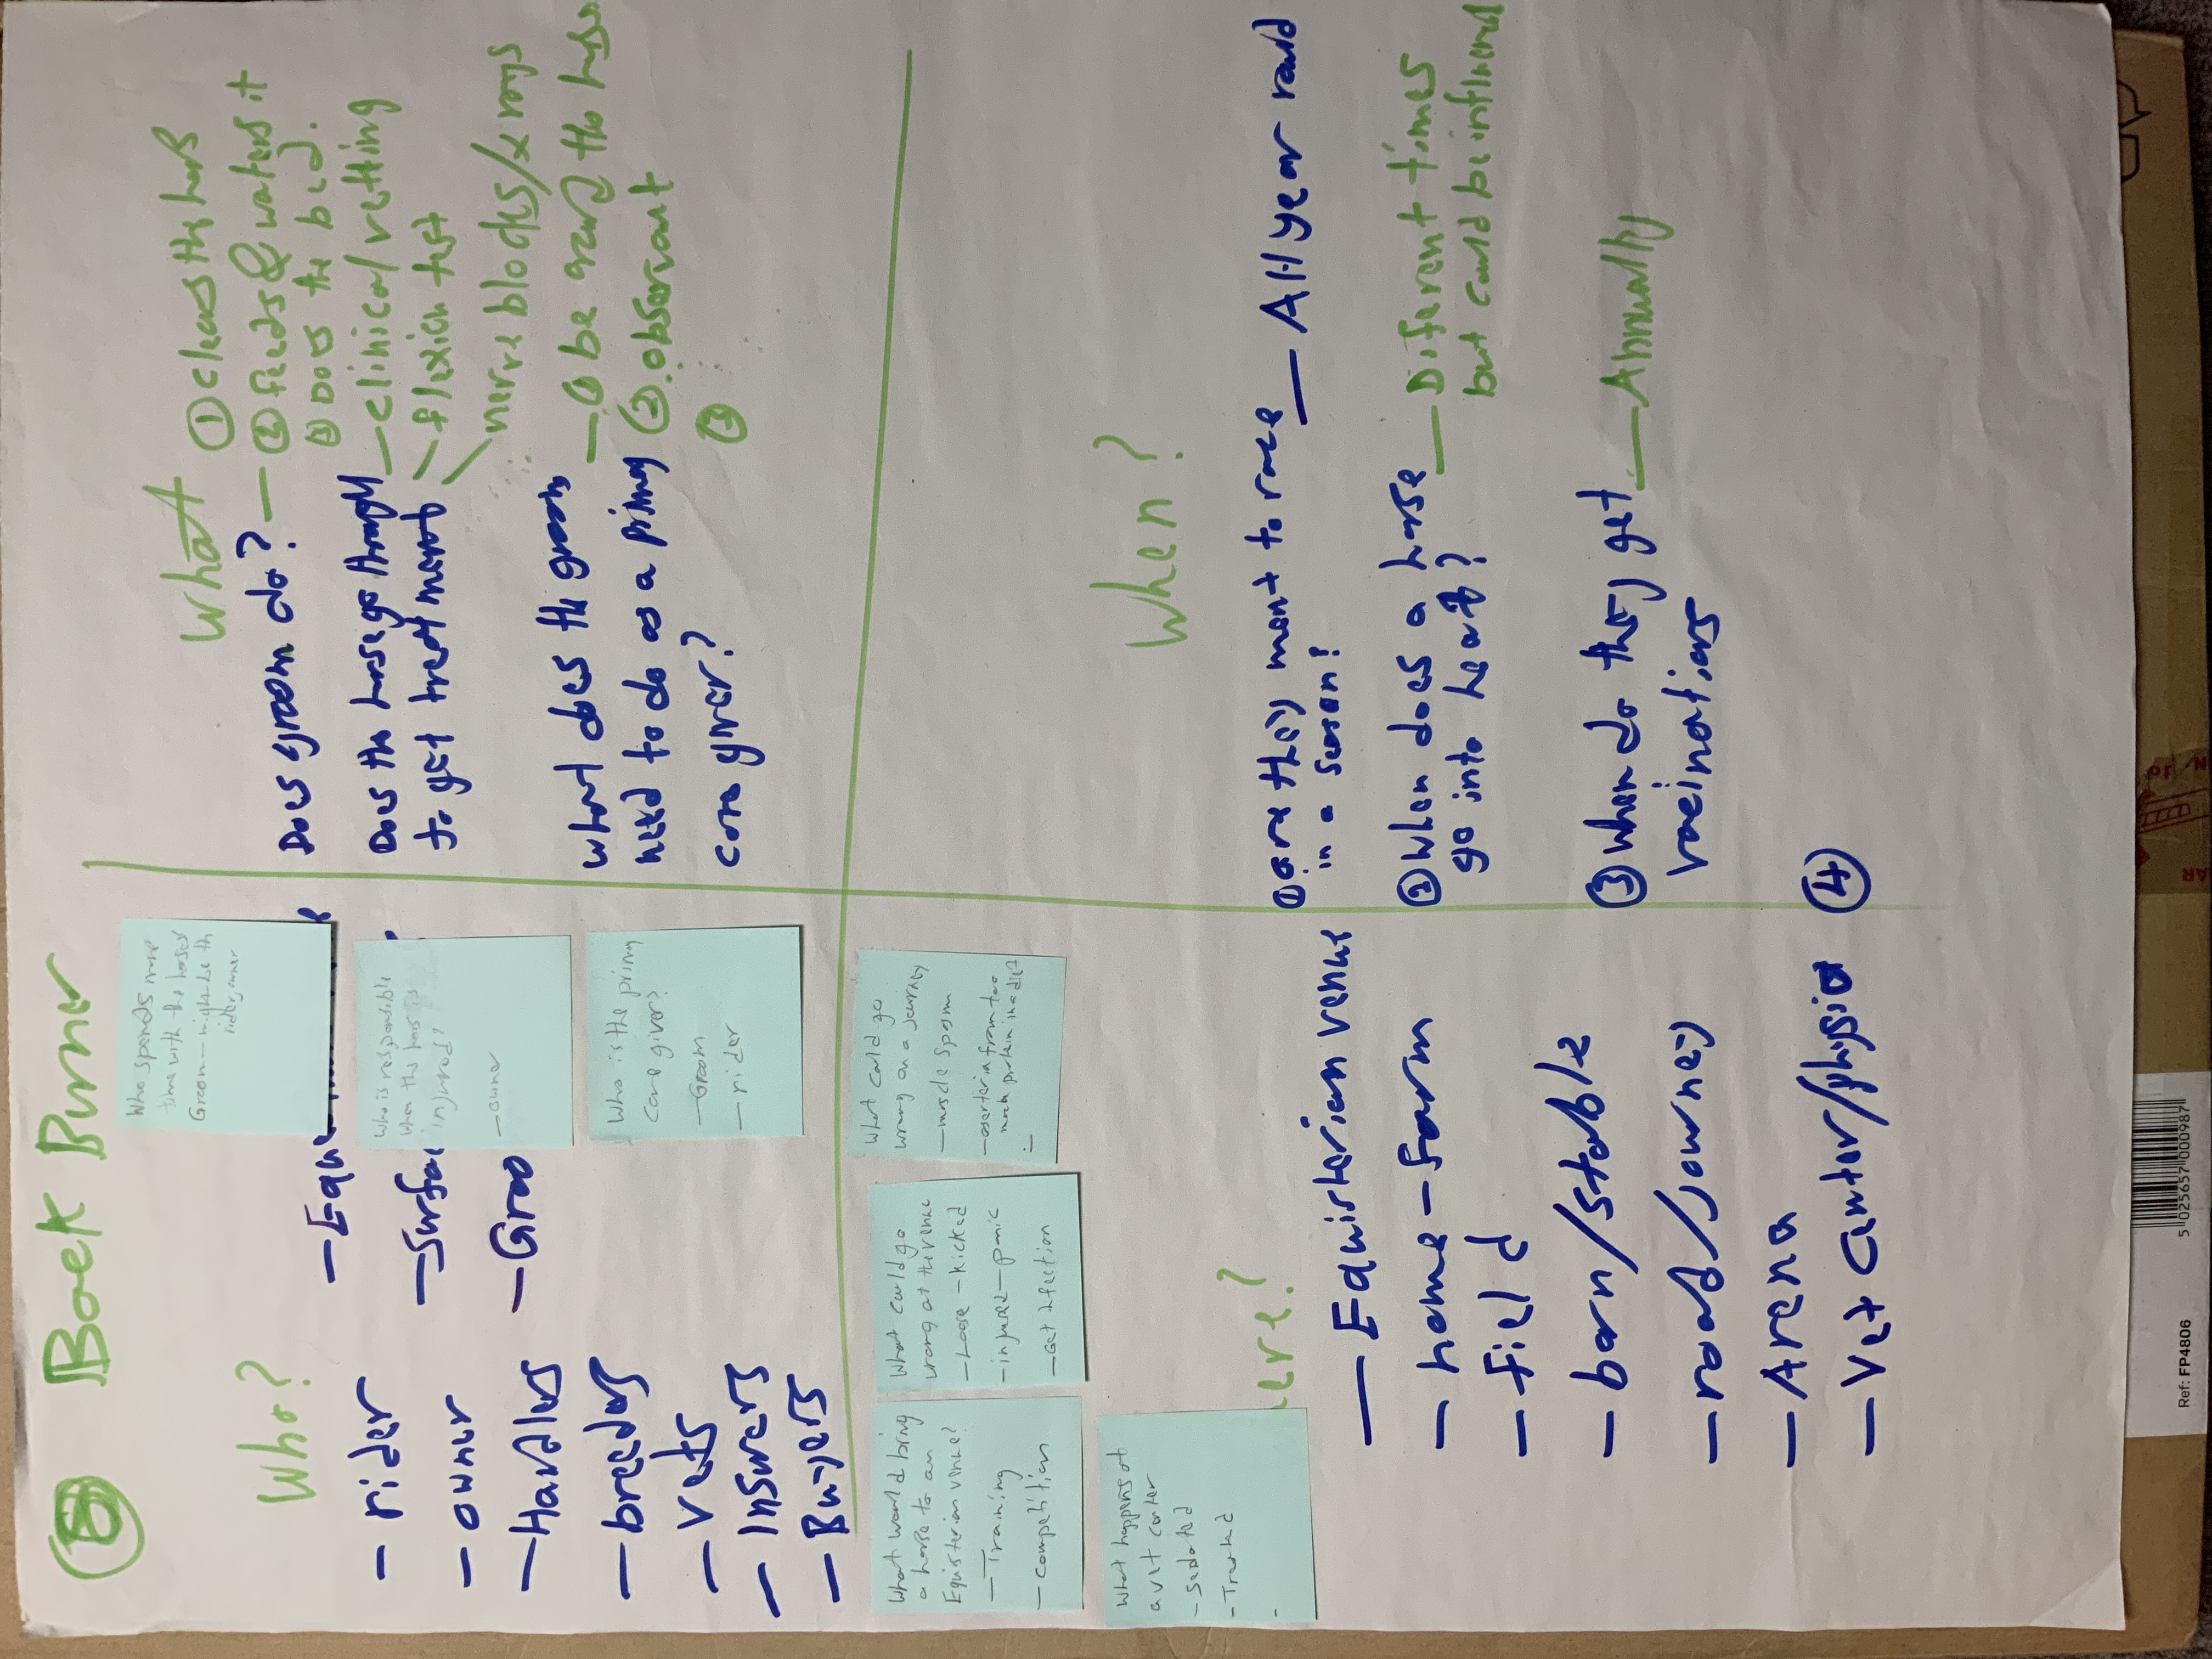 Book Burner
Who?
- rider
- owner
- Handlers
- breeders
- vets
- Insurers
- Buyers
- Surfac
- Groo
Who spends more
time with the horse?
Groom - might be th
rider, owner
Who is responsible
when the horse is
injured?
- owner
Who is the primry
care giver?
- Groom
- rider
What
Does groom do?
① cleans the hors
② feeds & waters it
③ Does the bed.
Does the horse go through
to get treatment
- clinical/vetting
- flexion test
nerve blocks/x rays
What does the groom
need to do as a primry
care giver?
- be around the horse
② observant
③
What would bring
a horse to an
Equisterian venue?
- Training
- competition
What could go
wrong at the venue
- Loose - kicked
- injured - panic
- Get infection
What could go
wrong on a journey
- muscle spasm
much protein in a diet
What happens at
a vet center
- sedated
- Treated
-
ere?
- Equisterian venue
- home - farm
- field
- barn/stable
- road/Journey
- Arena
- Vet Center/physio
When?
① are they meant to race
in a season?
- All year round
② When does a horse
go into heat?
- Different times
but could be influenced
③ When do they get
vacinations
- Annually
④
Ref: FP4806
5 025657 000987